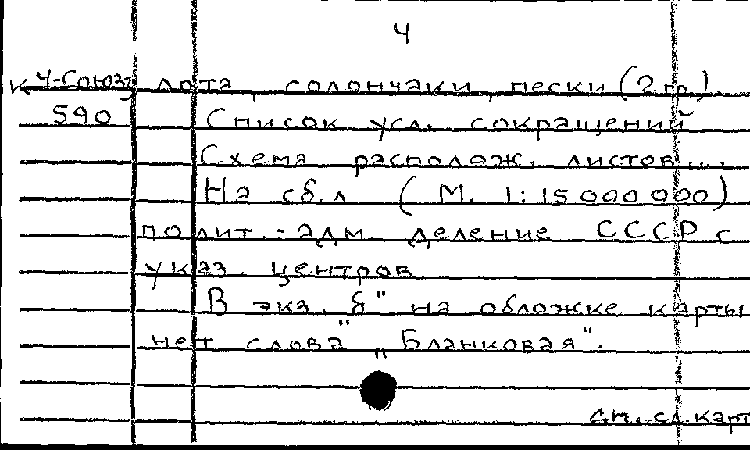 4
К 4-Союз, лота, солончаки, пески (2 гр.)
590 Список усл. сокращений
Схема располож. листов...
На сб.л (М. 1:15 000 000)
полит.-адм. деление СССР с
указ. центров
В экз. "б" на обложке карты
нет слова „Бланковая".
см. сл. карт